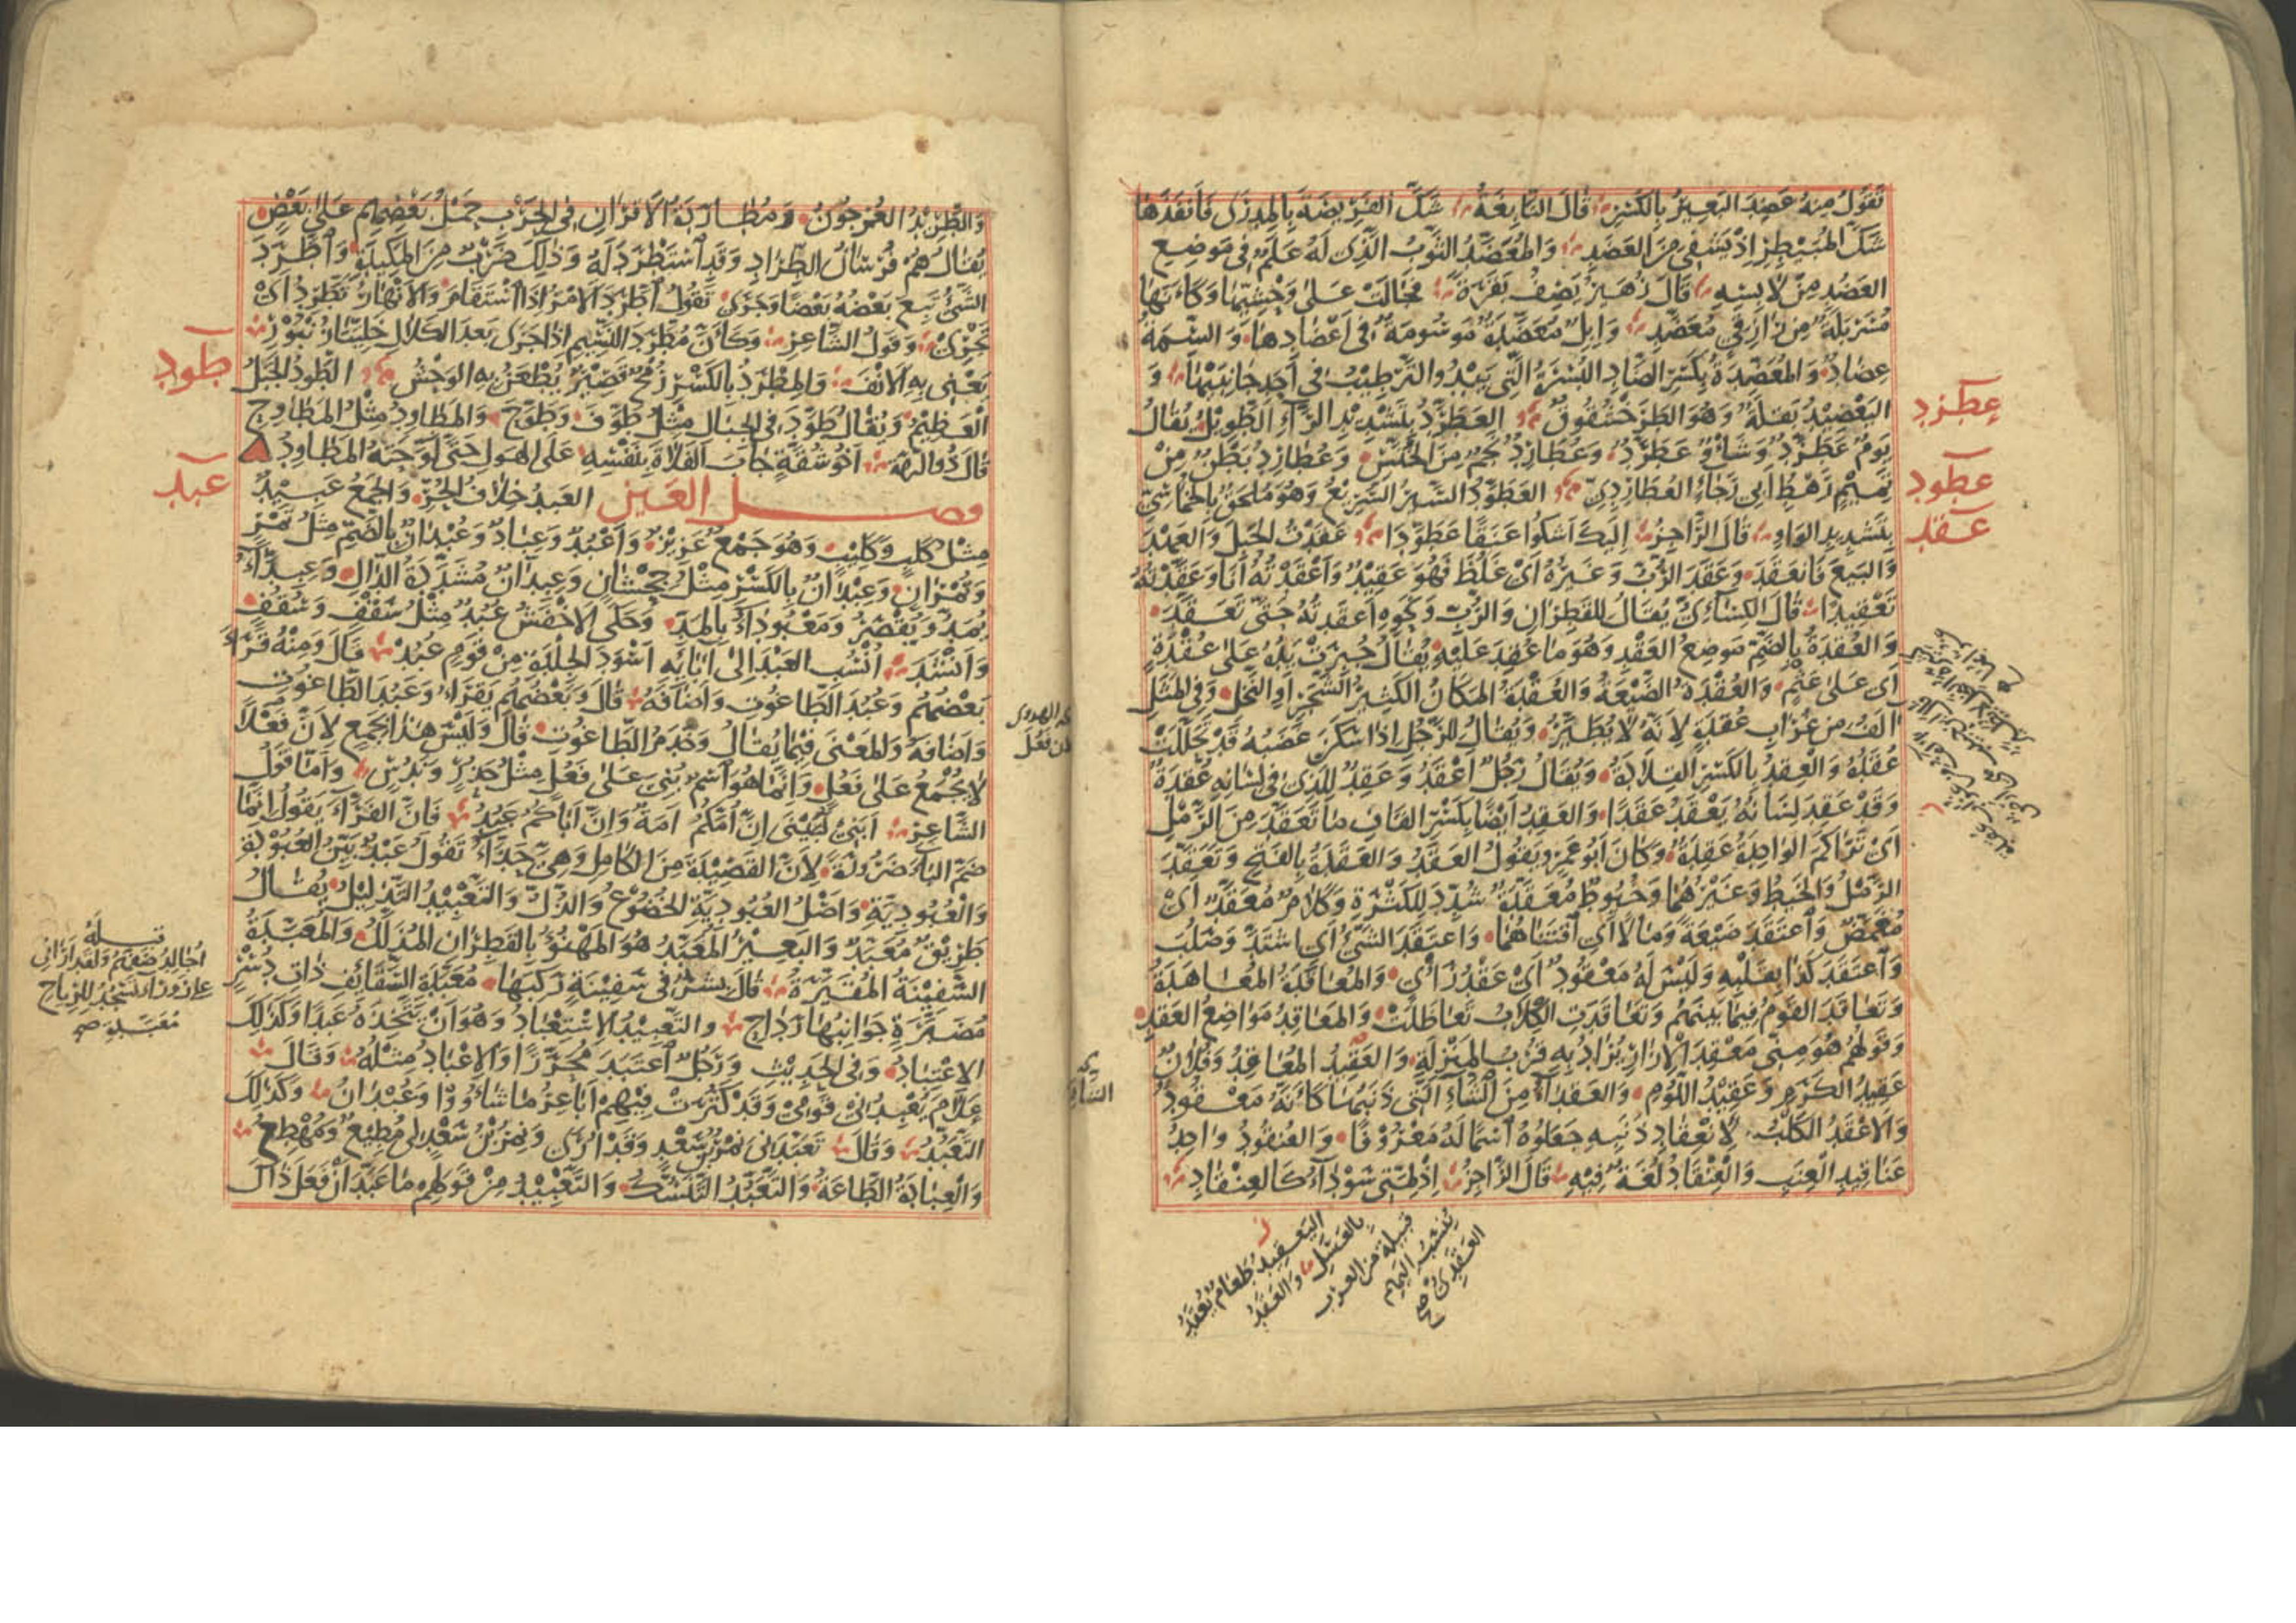 تَقُولُ مِنْهُ عَضِدَ البَعِيرُ بِالكَسْرِ قَالَ النَّابِغَةُ شَكَّ الفَرِيصَةَ بِالمِدْرَى فَأَنْفَذَهَا
شَكَّ المُبَيْطِرِ إِذْ يَشْفِي مِنَ العَضَدِ وَالمُعَضَّدُ الثَّوْبُ الَّذِي لَهُ عَلَمٌ فِي مَوْضِعِ
العَضُدِ مِنْ لَابِسِهِ قَالَ زُهَيْرٌ يَصِفُ بَقَرَةً فَجَالَتْ عَلَى وَحْشِيِّهَا وَكَأَنَّهَا
مُسَرْبَلَةٌ مِنْ رَازِقِيٍّ مُعَضَّدِ وَإِبِلٌ مُعَضَّدَةٌ مَوْسُومَةٌ فِي أَعْضَادِهَا وَالسِّمَةُ
عِضَادٌ وَالمُعَضِّدَةُ بِكَسْرِ الضَّادِ البُسْرَةُ الَّتِي يَبْدُو التَّرْطِيبُ فِي أَحَدِ جَانِبَيْهَا وَ
اليَعْضِيدُ بَقْلَةٌ وَهُوَ الطَّرْخَشْقُوقُ العَطَرَّدُ بِتَشْدِيدِ الرَّاءِ الطَّوِيلُ يُقَالُ
يَوْمٌ عَطَرَّدٌ وَشَأْوٌ عَطَرَّدٌ وَعُطَارِدٌ نَجْمٌ مِنَ الخُنَّسِ وَعُطَارِدٌ بَطْنٌ مِنْ
تَمِيمٍ رَهْطُ أَبِي رَجَاءٍ العُطَارِدِيِّ العَطَوَّدُ السَّيْرُ السَّرِيعُ وَهُوَ مُلْحَقٌ بِالخُمَاسِيِّ
بِتَشْدِيدِ الوَاوِ قَالَ الرَّاجِزُ إِلَيْكَ أَشْكُو عَنَقًا عَطَوَّدَا عَقَدْتُ الحَبْلَ وَالعَهْدَ
وَالبَيْعَ فَانْعَقَدَ وَعَقَدَ الرُّبُّ وَغَيْرُهُ أَيْ غَلُظَ فَهُوَ عَقِيدٌ وَأَعْقَدْتُهُ أَنَا وَعَقَّدْتُهُ
تَعْقِيدًا قَالَ الكِسَائِيُّ يُقَالُ لِلْقَطِرَانِ وَالرُّبِّ وَنَحْوِهِ أَعْقَدْتُهُ حَتَّى تَعَقَّدَ
وَالعُقْدَةُ بِالضَّمِّ مَوْضِعُ العَقْدِ وَهُوَ مَا عُقِدَ عَلَيْهِ يُقَالُ جُبِرَتْ يَدُهُ عَلَى عُقْدَةٍ
أَيْ عَلَى عَثْمٍ وَالعُقْدَةُ الضَّيْعَةُ وَالعُقْدَةُ المَكَانُ الكَثِيرُ الشَّجَرِ أَوِ النَّخْلِ وَفِي المَثَلِ
آلَفُ مِنْ غُرَابِ عُقْدَةٍ لِأَنَّهُ لَا يُطَيَّرُ وَيُقَالُ لِلرَّجُلِ إِذَا سَكَنَ غَضَبُهُ قَدْ تَحَلَّلَتْ
عُقَدُهُ وَالعِقْدُ بِالكَسْرِ القِلَادَةُ وَيُقَالُ رَجُلٌ أَعْقَدُ وَعَقِدٌ لِلَّذِي فِي لِسَانِهِ عُقْدَةٌ
وَقَدْ عَقِدَ لِسَانُهُ يَعْقَدُ عَقَدًا وَالعَقِدُ أَيْضًا بِكَسْرِ القَافِ مَا تَعَقَّدَ مِنَ الرَّمْلِ
أَيْ تَرَاكَمَ الوَاحِدَةُ عَقِدَةٌ وَكَانَ أَبُو عَمْرٍو يَقُولُ العَقَدُ وَالعَقَدَةُ بِالفَتْحِ وَتَعَقَّدَ
الرَّمْلُ وَالخَيْطُ وَغَيْرُهُمَا وَخُيُوطٌ مُعَقَّدَةٌ شُدِّدَ لِلْكَثْرَةِ وَكَلَامٌ مُعَقَّدٌ أَيْ
مُغَمَّضٌ وَاعْتَقَدَ ضَيْعَةً وَمَالًا أَيِ اقْتَنَاهُمَا وَاعْتَقَدَ الشَّيْءُ أَيِ اشْتَدَّ وَصَلُبَ
وَاعْتَقَدَ كَذَا بِقَلْبِهِ وَلَيْسَ لَهُ مَعْقُودٌ أَيْ عَقْدُ رَأْيٍ وَالمُعَاقَدَةُ المُعَاهَدَةُ
وَتَعَاقَدَ القَوْمُ فِيمَا بَيْنَهُمْ وَتَعَاقَدَتِ الكِلَابُ تَعَاظَلَتْ وَالمَعَاقِدُ مَوَاضِعُ العَقْدِ
وَقَوْلُهُمْ هُوَ مِنِّي مَعْقِدَ الإِزَارِ يُرَادُ بِهِ قُرْبُ المَنْزِلَةِ وَالعَقِيدُ المُعَاقِدُ وَفُلَانٌ
عَقِيدُ الكَرَمِ وَعَقِيدُ اللُّؤْمِ وَالعَقْدَاءُ مِنَ الشَّاءِ الَّتِي ذَنَبُهَا كَأَنَّهُ مَعْقُودٌ
وَالأَعْقَدُ الكَلْبُ لِانْعِقَادِ ذَنَبِهِ جَعَلُوهُ اسْمًا لَهُ مَعْرُوفًا وَالعُنْقُودُ وَاحِدُ
عَنَاقِيدِ العِنَبِ وَالعِنْقَادُ لُغَةٌ فِيهِ قَالَ الرَّاجِزُ إِذْ لِمَّتِي سَوْدَاءُ كَالعِنْقَادِ
عطرد
عطود
عقد
اليَعْقِيدُ طَعَامٌ يُعْقَدُ
بِالعَسَلِ وَالعَقَدُ
قَبِيلَةٌ مِنَ العرب
يُنْسَبُ إليهم
العَقَدِيُّ صح
وَالطَّرِيدُ العُرْجُونُ وَمُطَارَدَةُ الأَقْرَانِ فِي الحَرْبِ حَمْلُ بَعْضِهِمْ عَلَى بَعْضٍ
يُقَالُ هُمْ فُرْسَانُ الطِّرَادِ وَقَدِ اسْتَطْرَدَ لَهُ وَذَلِكَ ضَرْبٌ مِنَ المَكِيدَةِ وَاطَّرَدَ
الشَّيْءُ تَبِعَ بَعْضُهُ بَعْضًا وَجَرَى تَقُولُ اطَّرَدَ الأَمْرُ إِذَا اسْتَقَامَ وَالأَنْهَارُ تَطَّرِدُ أَيْ
تَجْرِي وَقَوْلُ الشَّاعِرِ وَكَأَنَّ مُطَّرِدَ النَّسِيمِ إِذَا جَرَى بَعْدَ الكَلَالِ خَلِيَّتَا زُنْبُورِ
يَعْنِي بِهِ الأَنْفَ وَالمِطْرَدُ بِالكَسْرِ رُمْحٌ قَصِيرٌ يُطْعَنُ بِهِ الوَحْشُ الطَّوْدُ الجَبَلُ
العَظِيمُ وَيُقَالُ طَوَّدَ فِي الجِبَالِ مِثْلُ طَوَّفَ وَطَوَّحَ وَالمَطَاوِدُ مِثْلُ المَطَاوِحِ
قَالَ ذُو الرُّمَّةِ أَخُو شُقَّةٍ جَابَ الفَلَاةَ بِنَفْسِهِ عَلَى الهَوْلِ حَتَّى لَوَّحَتْهُ المَطَاوِدُ
فصل العين العَبْدُ خِلَافُ الحُرِّ وَالجَمْعُ عَبِيدٌ
مِثْلُ كَلْبٍ وَكَلِيبٍ وَهُوَ جَمْعٌ عَزِيزٌ وَأَعْبُدٌ وَعِبَادٌ وَعُبْدَانٌ بِالضَّمِّ مِثْلُ تَمْرٍ
وَتُمْرَانٍ وَعِبْدَانٌ بِالكَسْرِ مِثْلُ جِحْشَانٍ وَعِبِدَّانٌ مُشَدَّدَةُ الدَّالِ وَعِبِدَّاءُ
يُمَدُّ وَيُقْصَرُ وَمَعْبُودَاءُ بِالمَدِّ وَحَكَى الأَخْفَشُ عُبُدٌ مِثْلُ سَقْفٍ وَسُقُفٍ
وَأَنْشَدَ انْسُبِ العَبْدَ إِلَى آبَائِهِ أَسْوَدَ الجِلْدَةِ مِنْ قَوْمٍ عُبُدْ قَالَ وَمِنْهُ قَرَأَ
بَعْضُهُمْ وَعُبُدَ الطَّاغُوتِ وَأَضَافَهُ قَالَ وَبَعْضُهُمْ يَقْرَأُ وَعَبُدَ الطَّاغُوتِ
وَأَضَافَهُ وَالمَعْنَى فِيمَا يُقَالُ وَخَدَمُ الطَّاغُوتِ قَالَ وَلَيْسَ هَذَا بِجَمْعٍ لِأَنَّ فَعْلًا
لَا يُجْمَعُ عَلَى فَعُلٍ وَإِنَّمَا هُوَ اسْمٌ بُنِيَ عَلَى فَعُلٍ مِثْلُ حَذُرٍ وَنَدُسٍ وَأَمَّا قَوْلُ
الشَّاعِرِ أَبَنِي لُبَيْنَى إِنَّ أُمَّكُمُ أَمَةٌ وَإِنَّ أَبَاكُمُ عَبُدُ فَإِنَّ الفَرَّاءَ يَقُولُ إِنَّمَا
ضَمَّ البَاءَ ضَرُورَةً لِأَنَّ القَصِيدَةَ مِنَ الكَامِلِ وَهِيَ حَذَّاءُ تَقُولُ عَبْدٌ بَيِّنُ العُبُودَةِ
وَالعُبُودِيَّةِ وَأَصْلُ العُبُودِيَّةِ الخُضُوعُ وَالذُّلُّ وَالتَّعْبِيدُ التَّذْلِيلُ يُقَالُ
طَرِيقٌ مُعَبَّدٌ وَالبَعِيرُ المُعَبَّدُ هُوَ المَهْنُوءُ بِالقَطِرَانِ المُذَلَّلُ وَالمُعَبَّدَةُ
السَّفِينَةُ المُقَيَّرَةُ قَالَ بِشْرٌ فِي سَفِينَةٍ رَكِبَهَا مُعَبَّدَةِ السَّقَائِفِ ذَاتِ دُسْرٍ
مُضَبَّرَةٍ جَوَانِبُهَا رَدَاحِ وَالتَّعْبِيدُ الاِسْتِعْبَادُ وَهُوَ أَنْ يَتَّخِذَهُ عَبْدًا وَكَذَلِكَ
الاِعْتِبَادُ وَفِي الحَدِيثِ وَرَجُلٌ اعْتَبَدَ مُحَرَّرًا وَالإِعْبَادُ مِثْلُهُ وَقَالَ
عَلَامَ يُعْبِدُنِي قَوْمِي وَقَدْ كَثُرَتْ فِيهِمْ أَبَاعِرُ مَا شَاءُوا وَعُبْدَانُ وَكَذَلِكَ
التَّعَبُّدُ وَقَالَ تَعَبَّدَنِي نِمْرُ بْنُ سَعْدٍ وَقَدْ أُرَى وَنِمْرُ بْنُ سَعْدٍ لِي مُطِيعٌ وَمُهْطِعُ
وَالعِبَادَةُ الطَّاعَةُ وَالتَّعَبُّدُ التَّنَسُّكُ وَالتَّعْبِيدُ مِنْ قَوْلِهِمْ مَا عَبَّدَ أَنْ فَعَلَ ذَاكَ
طود
عبد
قبله